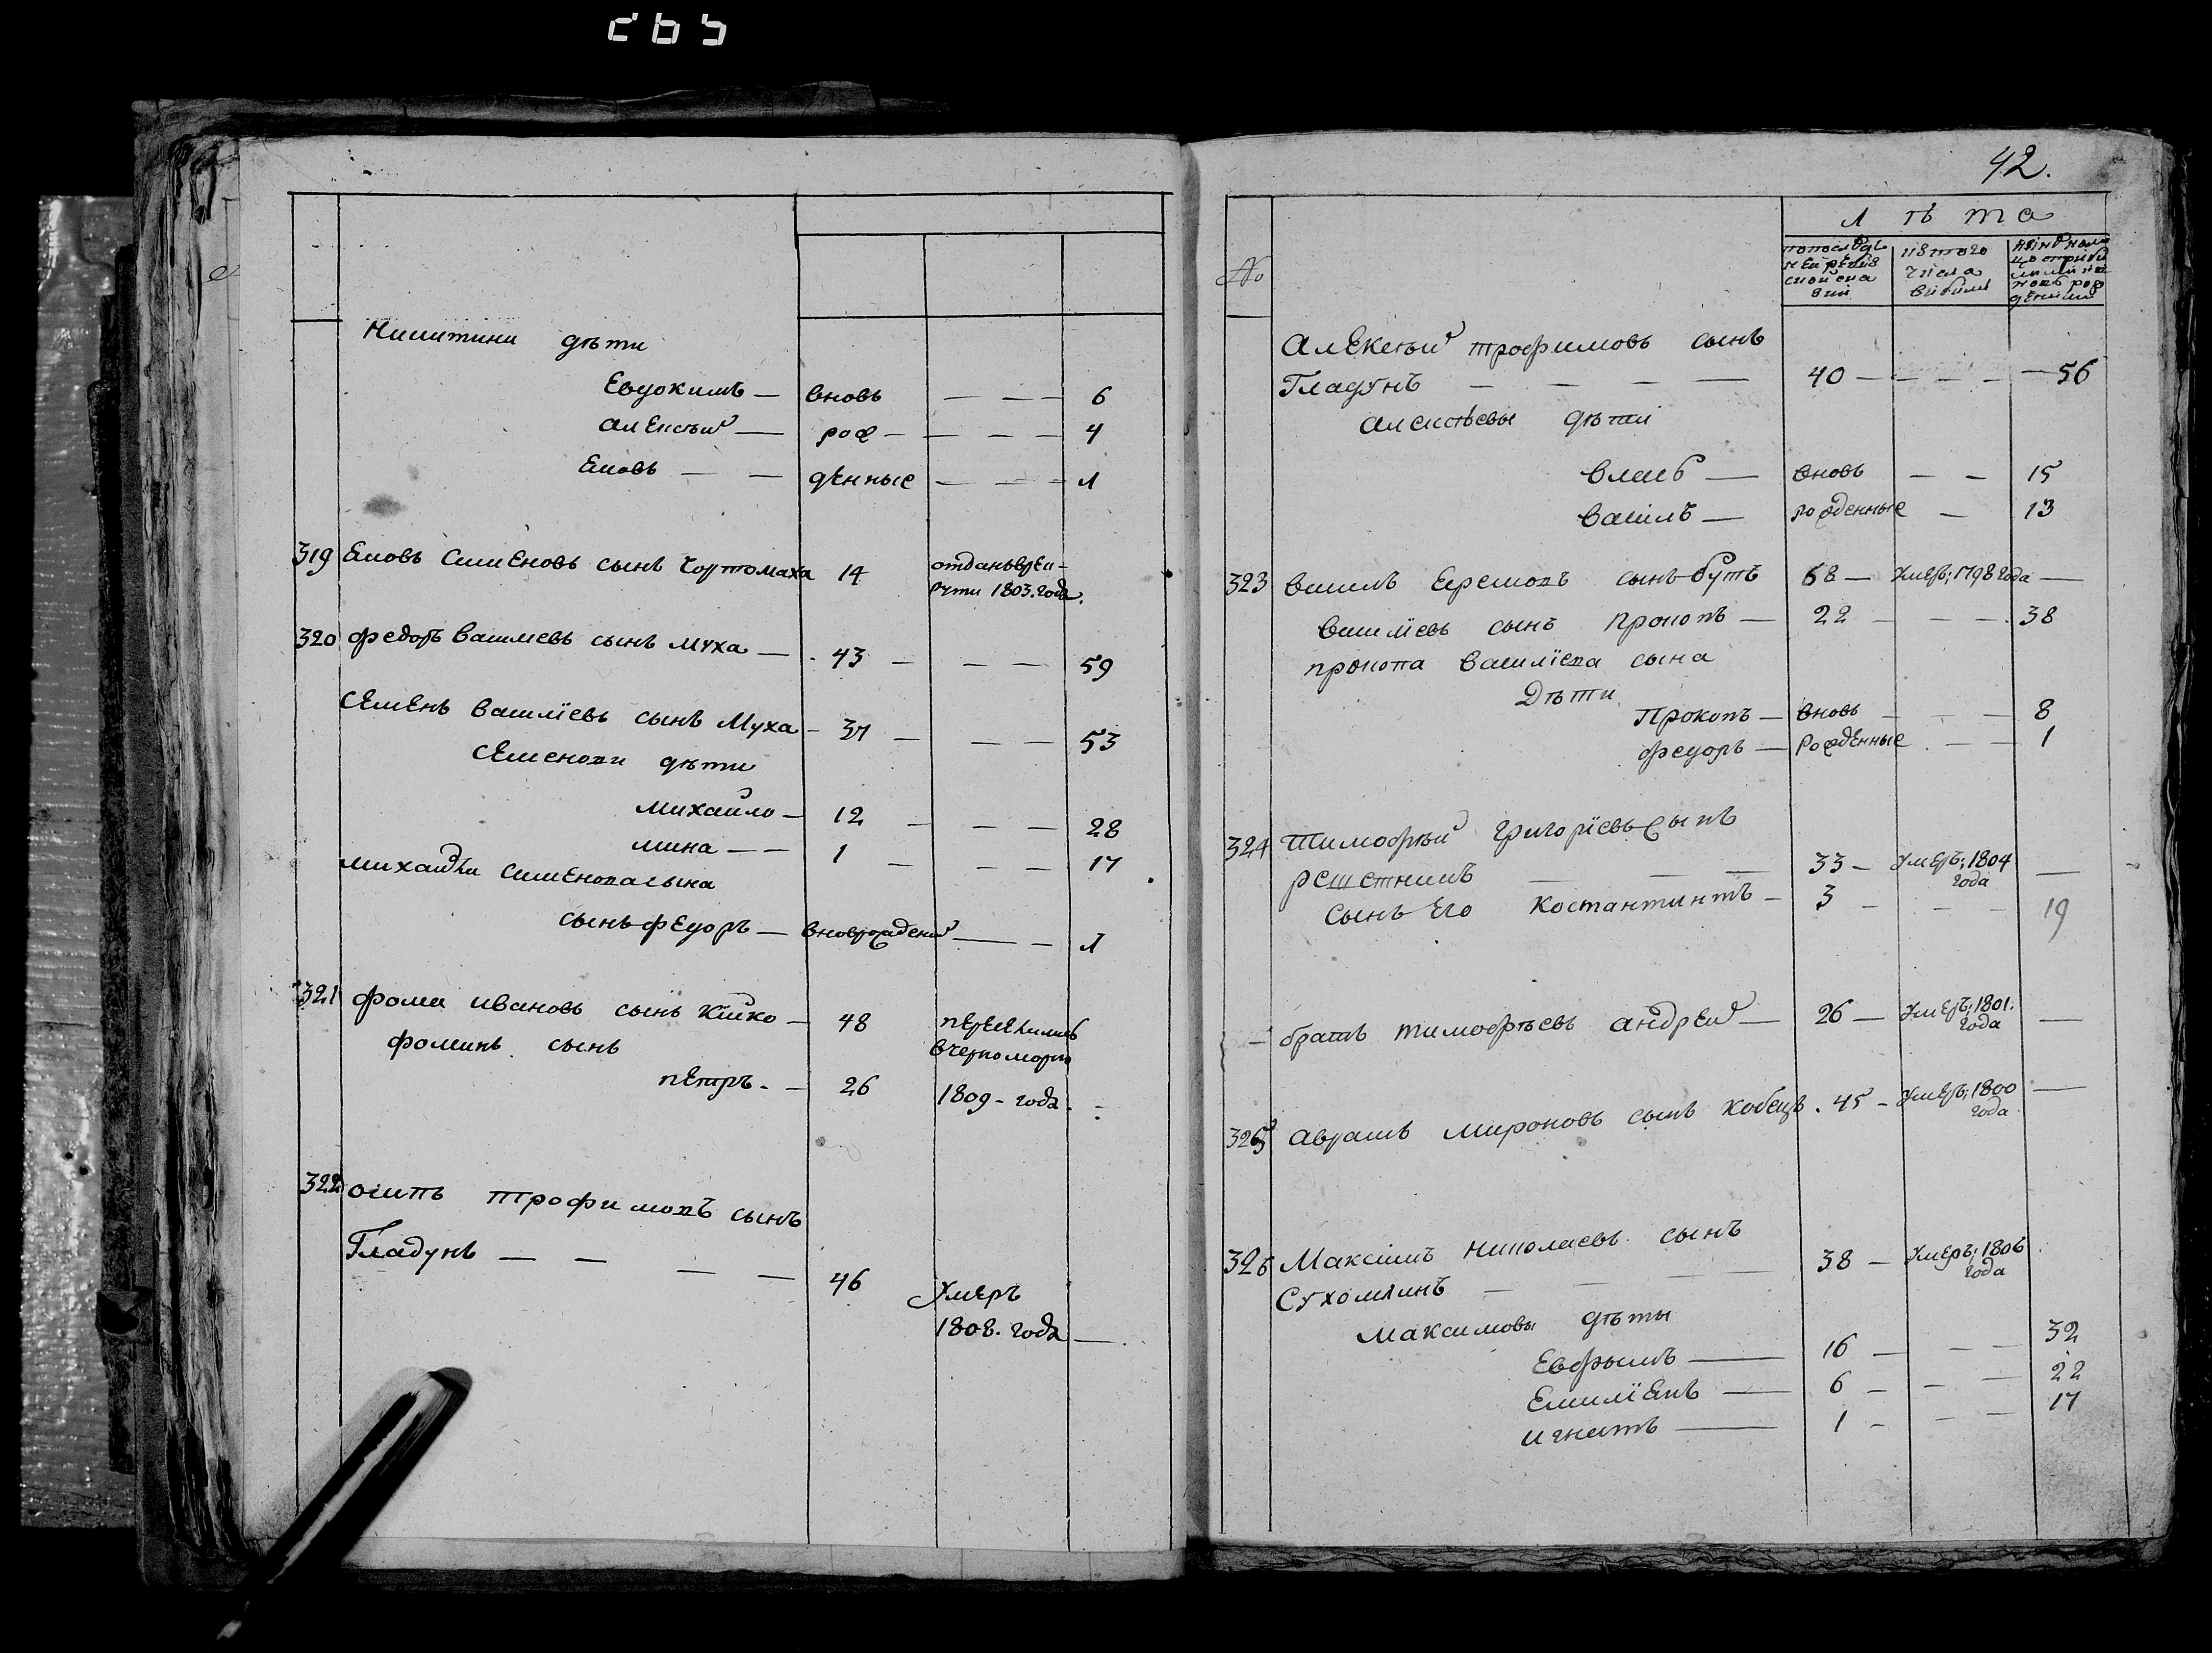 Никитини дѣти
Евдокимъ — вновь — — — 6
алексѣй — рож — — — — 4
Яковъ — — денные — — — 1
319 Яковъ Семеновъ сынъ Чортомаха 14 отданъ врек-
рути 1803. года.
320 федоръ васильевъ сынъ муха — 43 — — — 59
Семенъ василіевъ сынъ Муха — 37 — — — 53
Семенови дѣти
михайло — 12 — — — 28
мина — — 1 — — — 17
михайла семенова сына
сынъ федоръ — вноврожденй — — 1
321 фома ивановъ сынъ Кійко — 48 переселились
фоминъ сынъ вчерноморію
петръ. — 26 1809 - года.
322 осипъ трофимовъ сынъ
Гладунъ — — — — 46 умеръ
1808. года —
42.
№ лѣта
попослѣд
ней реви
ской ска
зки
изтого
числа
выбыли
алексѣй трофимовъ сынъ
Гладунъ — — — — 40 — — — — 56
алексѣевы дѣти
власъ — вновь — — 15
василь — рожденные — 13
323 василь Ефремовъ сынъ бутъ 68 — умеръ; 1798 года —
василіевъ сынъ прокопъ — 22 — — — 38
прокопа василіева сына
Дѣти
Прокопъ — вновь — — — 8
федоръ — рожденные — — 1
324 Тимофѣй григоріевъ сынъ
решетникъ — — — 33 — умеръ; 1804
года —
сынъ его костантинъ — 3 — — — 19
— братъ тимофѣевъ андрей — 26 — умеръ; 1801.
года —
325 аврамъ мироновъ сынъ кобецъ. 45 — умеръ; 1800 —
года
326 Максимъ николаевъ сынъ
Сухомлинъ — — — 38 — умеръ; 1806
года
максимовы дѣты
Евфымъ — 16 — — — 32
Емиліянъ — 6 — — — 22
игнатъ — 1 — — — 17